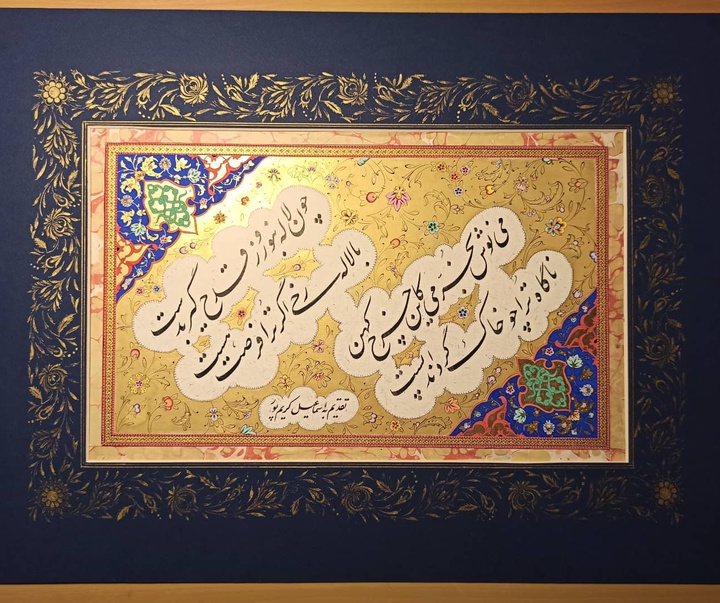 چون لاله بنوروز قدح گیر بدست
با لاله رخی اگر ترا فرصت هست
می نوش بخرمی که این چرخ کهن
ناگاه ترا چو خاک گرداند پست
تقدیم به اسماعیل کریم پور